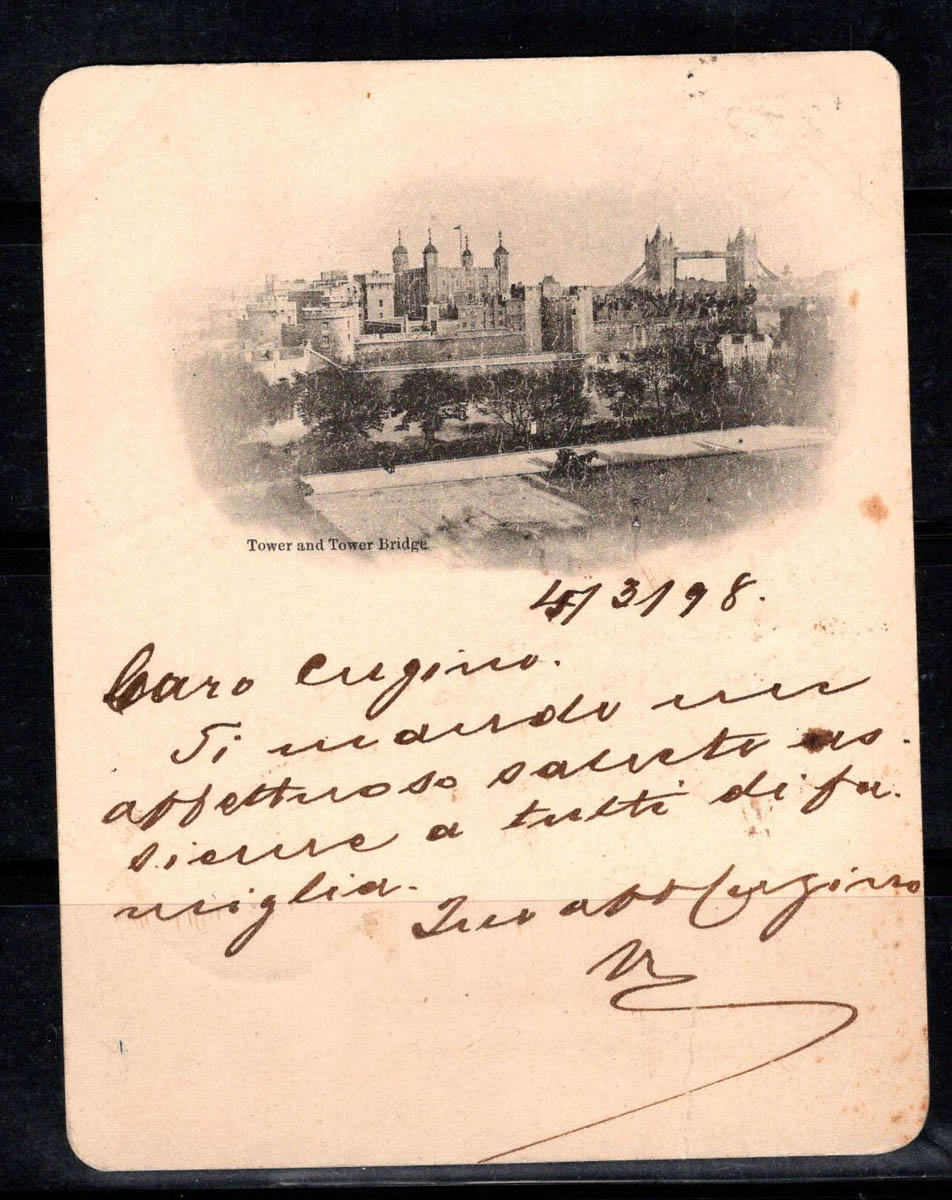 Tower and Tower Bridge
4/3/98.
Caro Cugino.
Ti mando un
affettuoso saluto as.
sieme a tutti di fa.
miglia.
Tuo aff Cugino